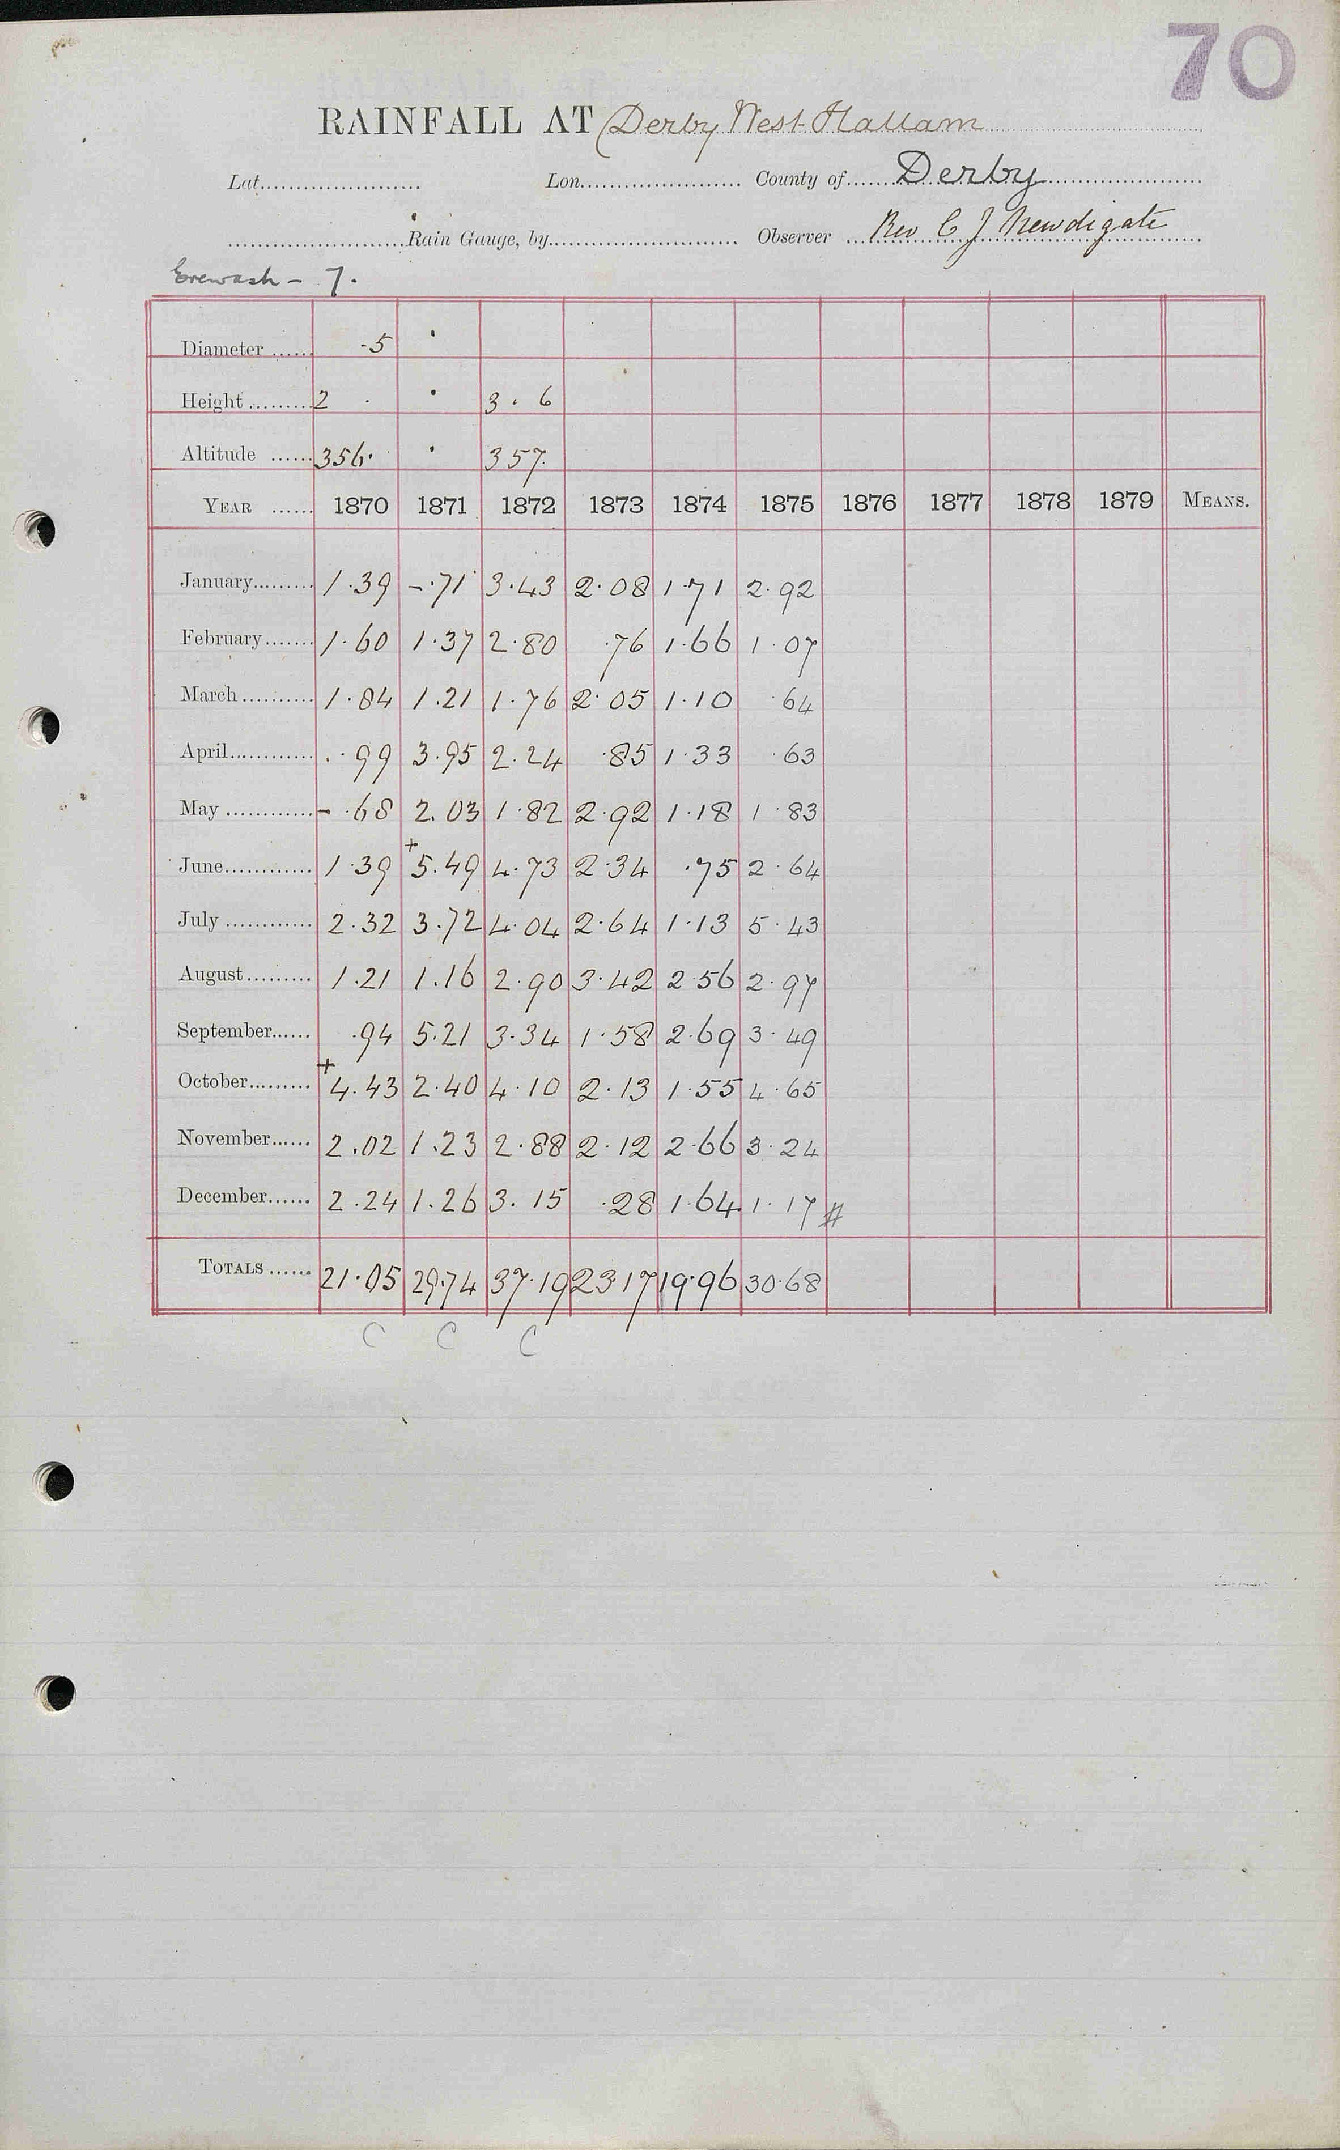 70
RAINFALL AT (Derby West Hallam
Lat. Lon. County of Derby
Rain Gauge, by Observer Rev C J Newdigate
Erewash - 7.
Diameter ...... 5
Height ......... 2 . 3 . 6
Altitude ...... 356. 357.
YEAR ...... 1870 1871 1872 1873 1874 1875 1876 1877 1878 1879 MEANS.
January......... 1.39 -.71 3.43 2.08 1.71 2.92
February....... 1.60 1.37 2.80 .76 1.66 1.07
March .......... 1.84 1.21 1.76 2.05 1.10 .64
April............ .99 3.95 2.24 .85 1.33 .63
May ............. -.68 2.03 1.82 2.92 1.18 1.83
June............. 1.39 +5.49 4.73 2.34 .75 2.64
July ............. 2.32 3.72 4.04 2.64 1.13 5.43
August......... 1.21 1.16 2.90 3.42 2.56 2.97
September...... .94 5.21 3.34 1.58 2.69 3.49
October......... +4.43 2.40 4.10 2.13 1.55 4.65
November...... 2.02 1.23 2.88 2.12 2.66 3.24
December...... 2.24 1.26 3.15 .28 1.64 1.17 #
TOTALS ...... 21.05 29.74 37.19 23.17 19.96 30.68
C C C